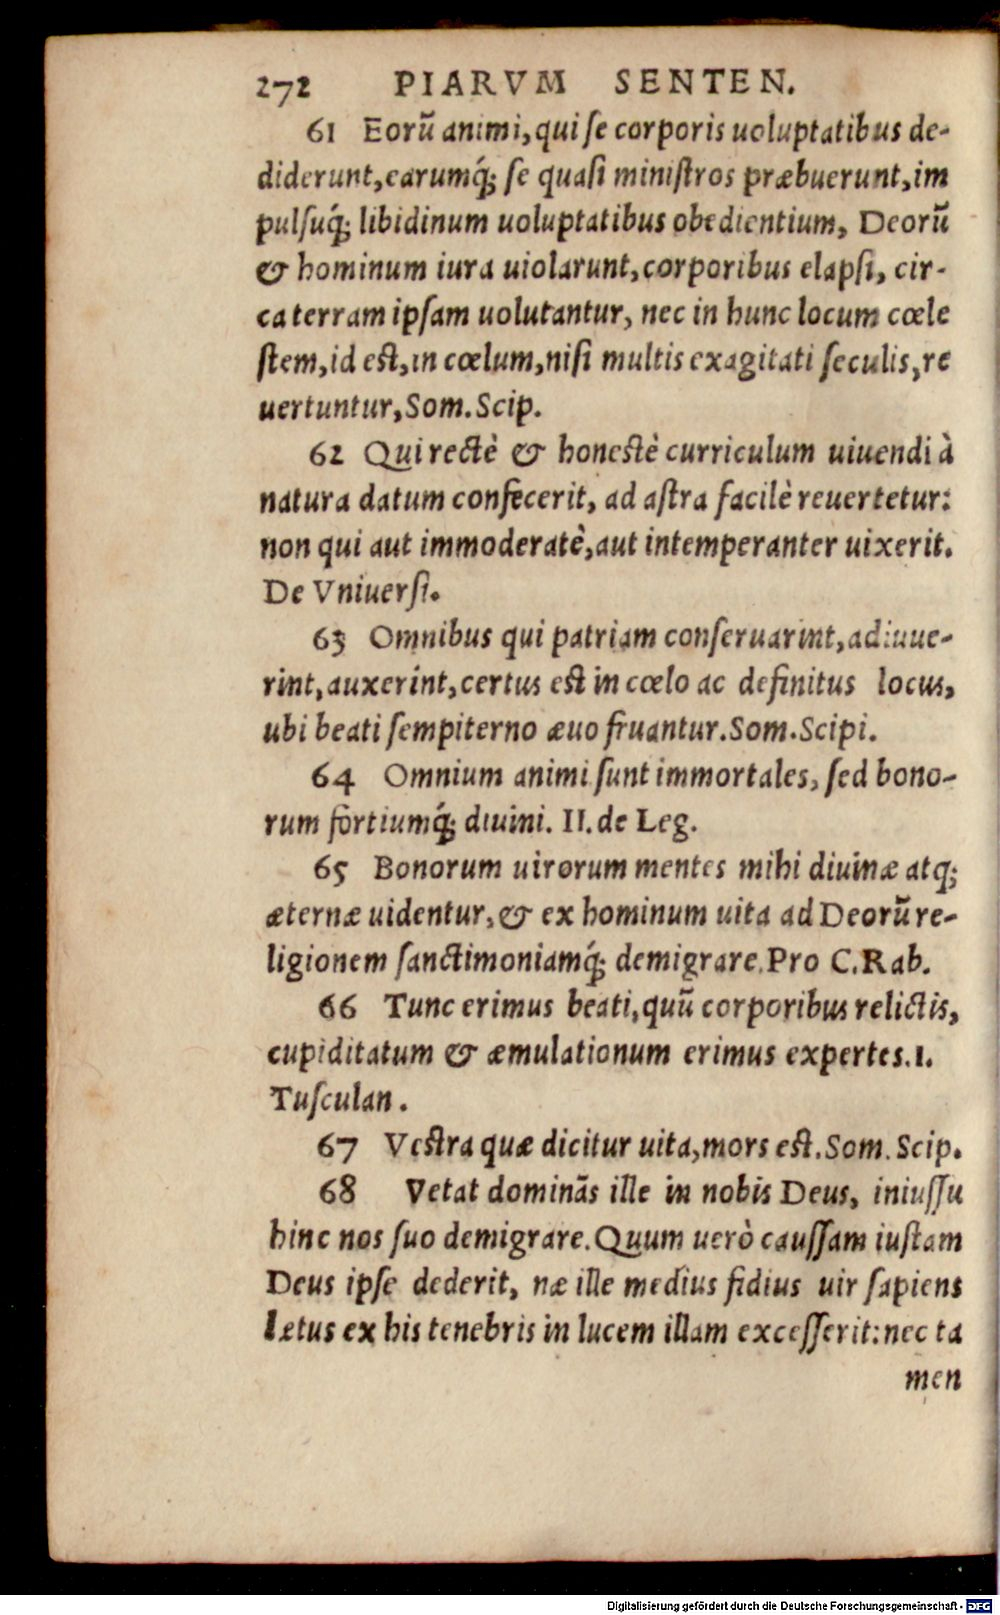 272 PIARVM SENTEN.
61 Eorũ animi, qui se corporis uoluptatibus de-
diderunt, earumq́; se quasi ministros præbuerunt, im
pulsuq́; libidinum uoluptatibus obedientium, Deorũ
& hominum iura uiolarunt, corporibus elapsi, cir-
ca terram ipsam uolutantur, nec in hunc locum cœle
stem, id est, in cœlum, nisi multis exagitati seculis, re
uertuntur, Som. Scip.
62 Qui rectè & honestè curriculum uiuendi à
natura datum confecerit, ad astra facilè reuertetur:
non qui aut immoderatè, aut intemperanter uixerit.
De Vniuersi.
63 Omnibus qui patriam conseruarint, adiuue-
rint, auxerint, certus est in cœlo ac definitus locus,
ubi beati sempiterno æuo fruantur. Som. Scipi.
64 Omnium animi sunt immortales, sed bono-
rum fortiumq́; diuini. II. de Leg.
65 Bonorum uirorum mentes mihi diuinæ atq;
æternæ uidentur, & ex hominum uita ad Deorũ re-
ligionem sanctimoniamq́; demigrare. Pro C. Rab.
66 Tunc erimus beati, quũ corporibus relictis,
cupiditatum & æmulationum erimus expertes. 1.
Tusculan.
67 Vestra quæ dicitur uita, mors est. Som. Scip.
68 Vetat dominãs ille in nobis Deus, iniussu
hinc nos suo demigrare. Quum uerò caussam iustam
Deus ipse dederit, næ ille medius fidius uir sapiens
lætus ex his tenebris in lucem illam excesserit: nec ta
men
Digitalisierung gefördert durch die Deutsche Forschungsgemeinschaft - DFG